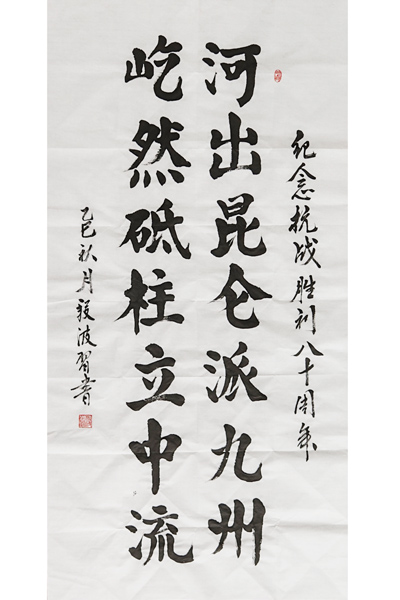 纪念抗战胜利八十周年
河出昆仑派九州
屹然砥柱立中流
乙巳秋月毅波习书